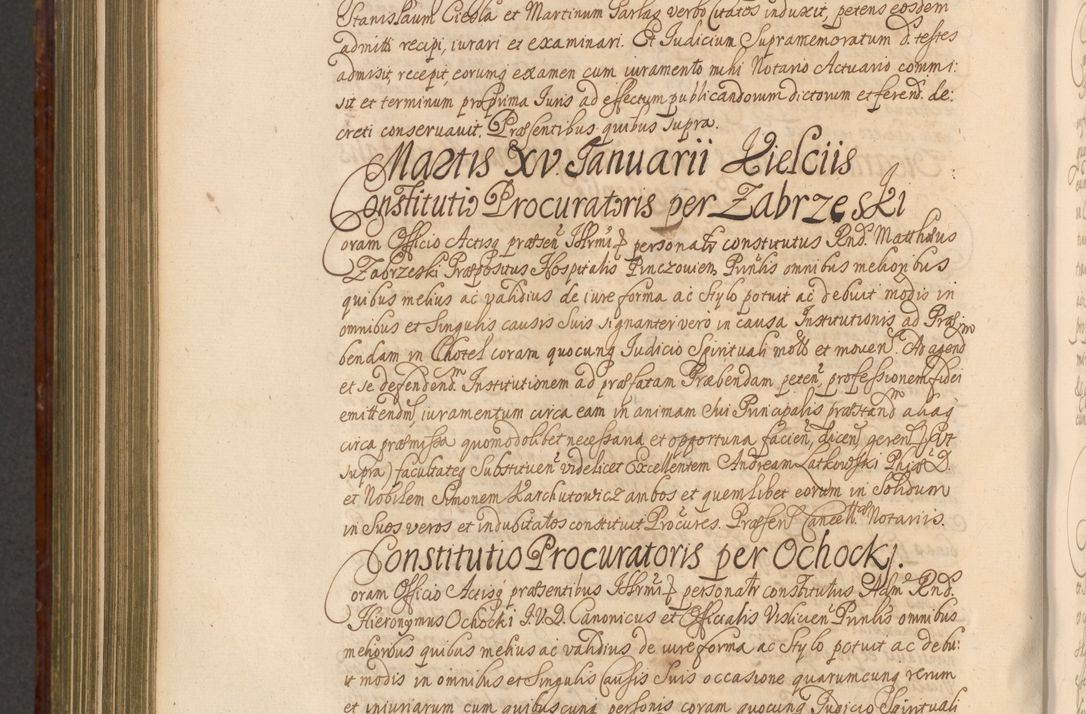 Stanislaum Ciesla et Martinum Garlag verbo citatos induxit, petens eosdem
admitti recipi, iurari et examinari. Et Iudicium Supramemoratum d. testes
admisit, recepit, eorumq examen cum iuramento mihi Notario Actuario commi:
sit et terminum pro prima Iuris ad effectum publicandorum dictorum et ferend. de:
creti conservavit. Præsentibus quibus supra.
Martis XV. Ianuarii Kielciis
Constitutio Procuratoris per Zabrzeski
Coram Officio Actisq præsen personalr constitutus Rnd. Matthæus
Zabrzeski Præpositus Hospitalis Pinczovien Prinlis omnibus melioribus
quibus melius ac validius de iure forma ac stylo potuit ac debuit modis in
omnibus et singulis causis suis signanter vero in causa Institutionis ad Præ:
bendam in Chotel coram quocunq Iudicio Spirituali mott et moven. Ad agend
et se defendend. Institutionem ad præfatam Præbendam peten, professionem fidei
emittendm, iuramentum circa eam in animam sui Principalis præstand aliaq
circa præmissa quomodolibet necessaria et opportuna facien, dicen, geren (ut
supra) facultateq substituen videlicet Excellentem Andream Latkowski Phiæ D.
et Nobilem Simonem Karchutowicz ambos et quemlibet eorum in solidum
in suos veros et indubitatos constituit Procures. Præsen Cancell. Notariis.
Constitutio Procuratoris per Ochockj.
Coram Officio Actisq præsentibus personalr constitutus Adm Rnd.
Hieronymus Ochocki I.V.D. Canonicus et Officialis Vislicien Prinlis omnibus
melioribus quibus melius ac validius de iure forma ac stylo potuit ac debu:
it modis in omnibus et singulis causis suis occasione quarumcunq rerum
et iniuriarum cum quibuscunq personis coram quocunq Iudicio Spirituali